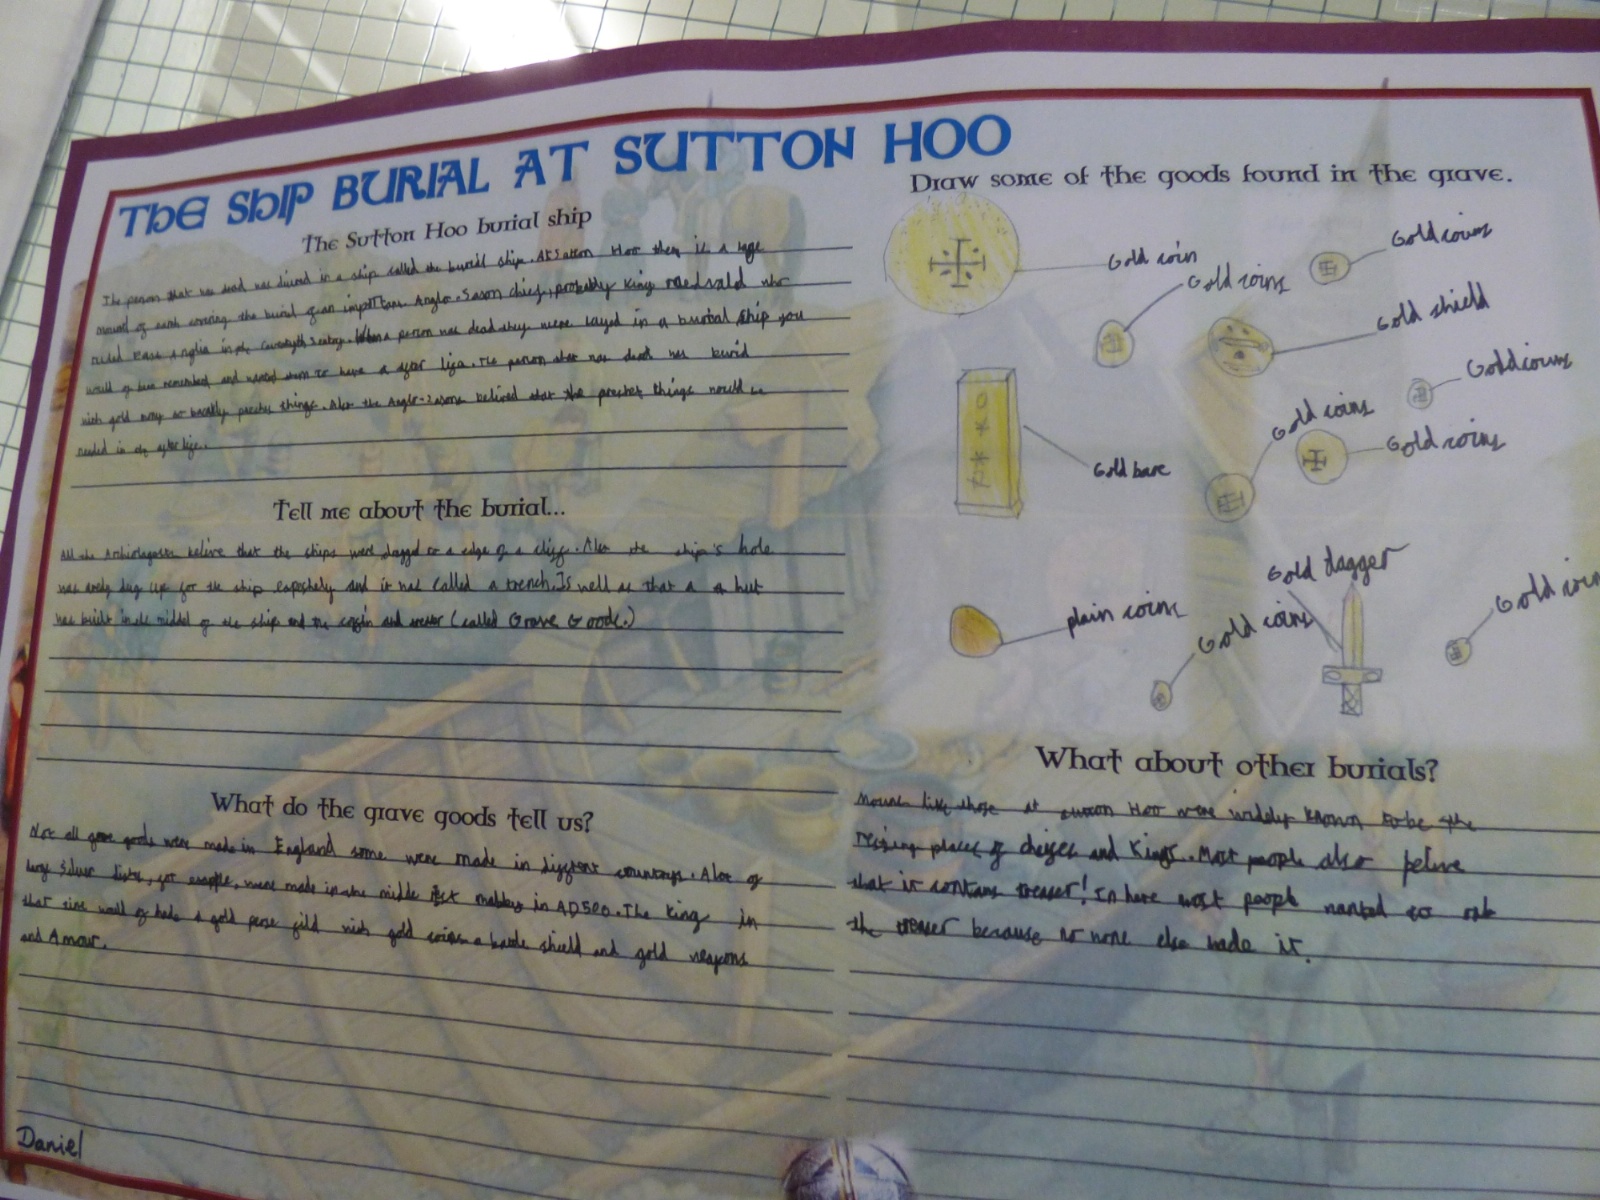 THE SHIP BURIAL AT SUTTON HOO
The Sutton Hoo burial ship
The person that was dead was in a ship called the burial ship. At Sutton Hoo there is a
mound of earth covering the burial of an Anglo-Saxon chief, probably King who
ruled East Anglia in the When a person was dead they were layed in a ship you
would of have remembered and wanted them to have a after life. The person that was dead was burid
with gold things. Also the Anglo-Saxons belived that the things would be
needed in the after life.
Tell me about the burial...
All the belive that the ships were dragged to a edge of a cliff. Also the ship's hole
was dug up for the ship and it was called a trench. Is well as that a hut
was built in the middel of the ship and the coffin and (called Grave Goods.)
What do the grave goods tell us?
Not all grave goods were made in England some were made in different countrys. A lot of
silver for were made in the middle in AD500. The King in
that time of had a gold with gold coins a battle shield and gold weapons
and Amour.
Daniel
Draw some of the goods found in the grave.
Gold coin
Gold coins
Gold coins
Gold shield
Gold coins
Gold coins
Gold coins
Gold bare
Gold dagger
plain coins
Gold coins
Gold coin
What about other burials?
like those at Sutton Hoo were widely known to be the
places of and Kings. Most people also belive
that it contans treaser! In here most peopl wanted to
the treaser because no none else made it.